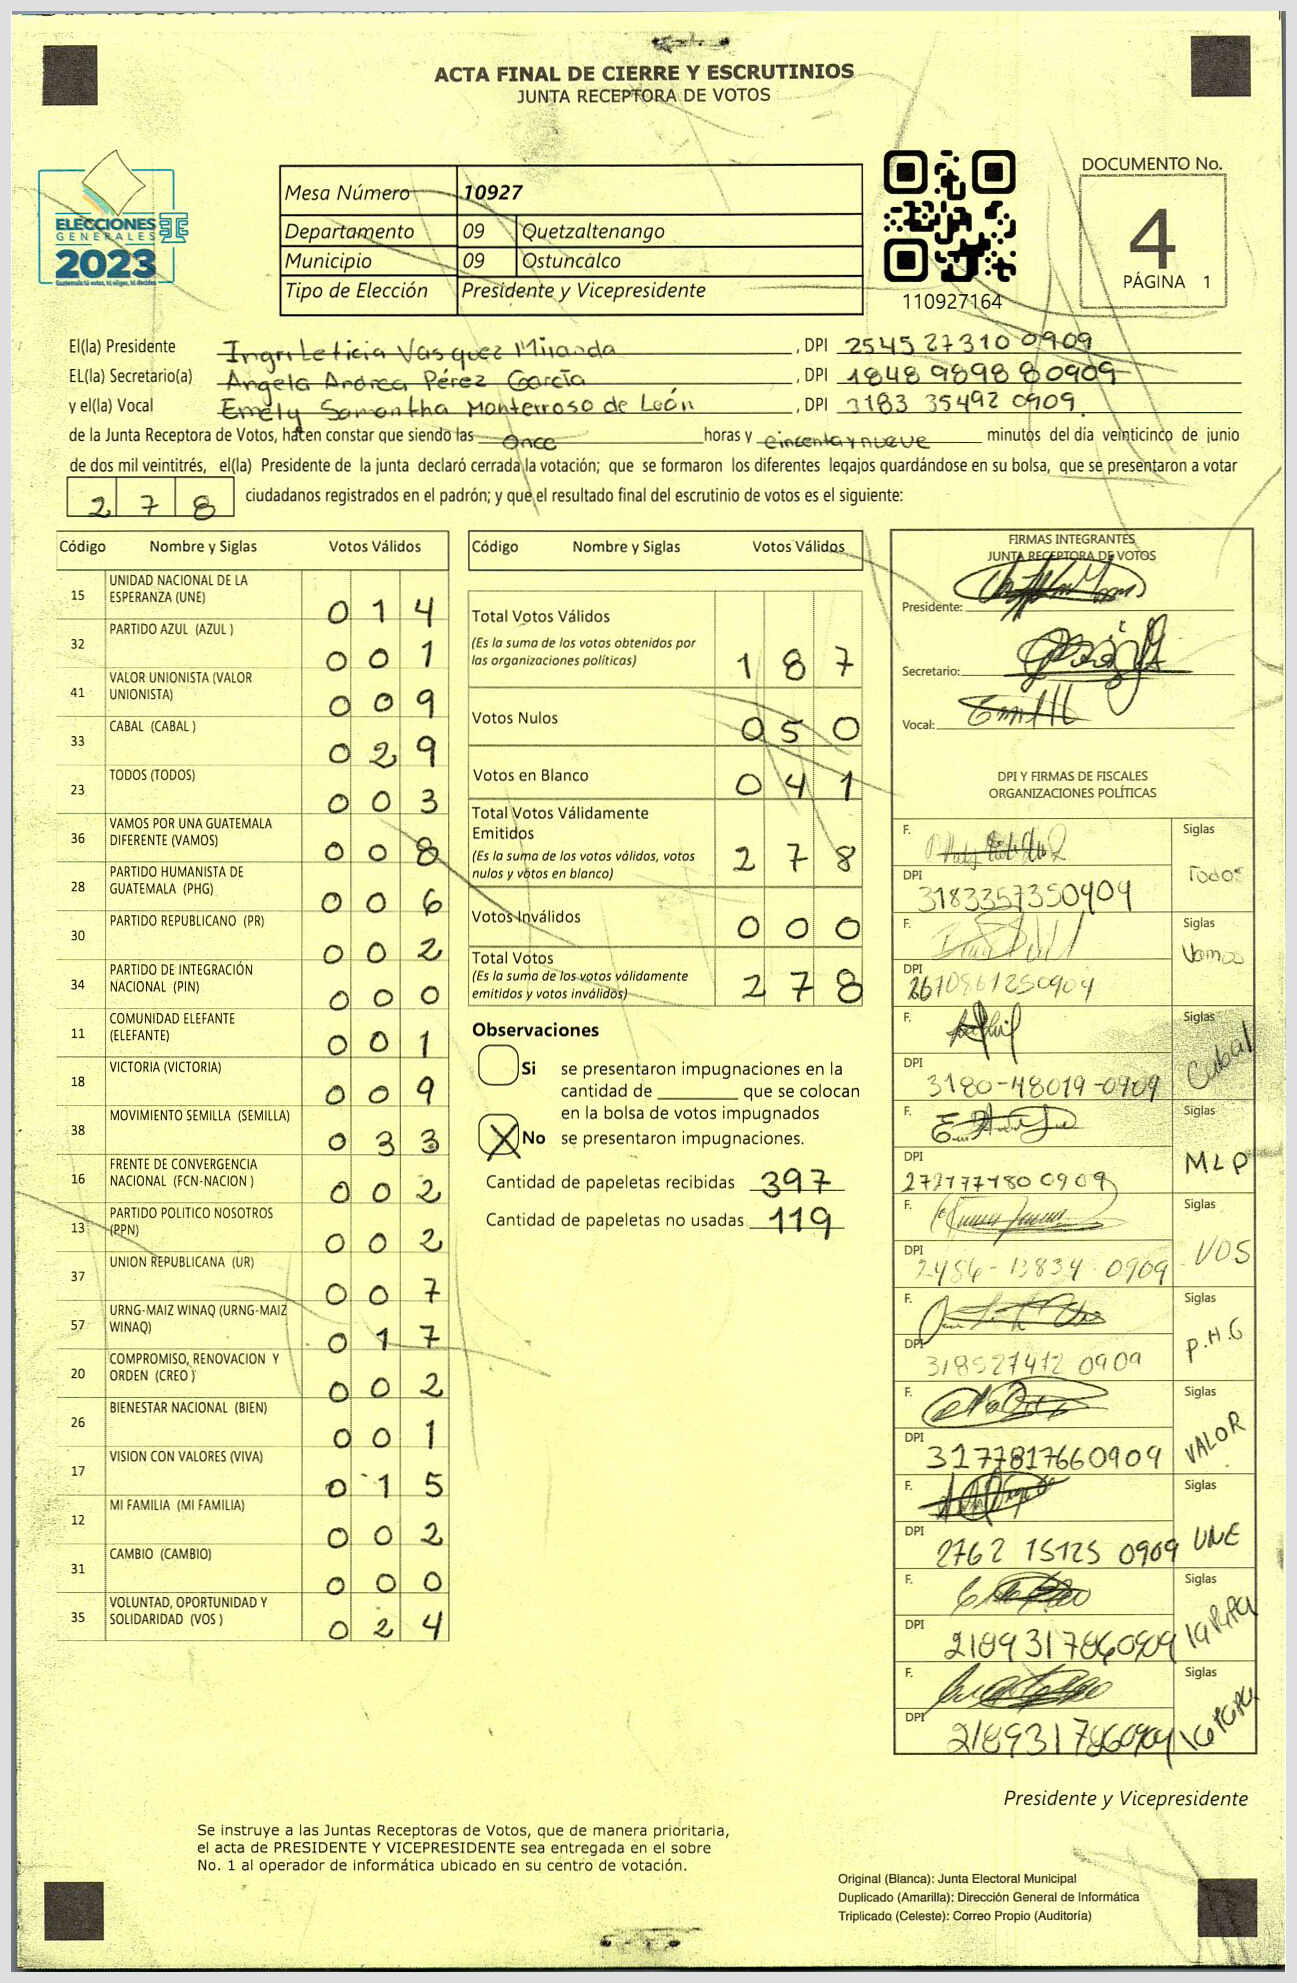 ACTA FINAL DE CIERRE Y ESCRUTINIOS
JUNTA RECEPTORA DE VOTOS
ELECCIONES
GENERALES
2023
Guatemala tú votas, tú eliges, tú decides
Mesa Número 10927
Departamento 09 Quetzaltenango
Municipio 09 Ostuncalco
Tipo de Elección Presidente y Vicepresidente
110927164
DOCUMENTO No.
4
PÁGINA 1
El(la) Presidente Ingri Leticia Vasquez Miranda , DPI 2545 27310 0909
EL(la) Secretario(a) Angela Andrea Pérez García , DPI 1848 9898 80909
y el(la) Vocal Emely Samantha Monterroso de León , DPI 3183 35492 0909
de la Junta Receptora de Votos, hacen constar que siendo las once horas y cincenta y nueve minutos del día veinticinco de junio
de dos mil veintitrés, el(la) Presidente de la junta declaró cerrada la votación; que se formaron los diferentes legajos quardándose en su bolsa, que se presentaron a votar
278 ciudadanos registrados en el padrón; y que el resultado final del escrutinio de votos es el siguiente:
Código Nombre y Siglas Votos Válidos
15 UNIDAD NACIONAL DE LA ESPERANZA (UNE) 014
32 PARTIDO AZUL (AZUL ) 001
41 VALOR UNIONISTA (VALOR UNIONISTA) 009
33 CABAL (CABAL ) 029
23 TODOS (TODOS) 003
36 VAMOS POR UNA GUATEMALA DIFERENTE (VAMOS) 008
28 PARTIDO HUMANISTA DE GUATEMALA (PHG) 006
30 PARTIDO REPUBLICANO (PR) 002
34 PARTIDO DE INTEGRACIÓN NACIONAL (PIN) 000
11 COMUNIDAD ELEFANTE (ELEFANTE) 001
18 VICTORIA (VICTORIA) 009
38 MOVIMIENTO SEMILLA (SEMILLA) 033
16 FRENTE DE CONVERGENCIA NACIONAL (FCN-NACION ) 002
13 PARTIDO POLITICO NOSOTROS (PPN) 002
37 UNION REPUBLICANA (UR) 007
57 URNG-MAIZ WINAQ (URNG-MAIZ WINAQ) 017
20 COMPROMISO, RENOVACION Y ORDEN (CREO ) 002
26 BIENESTAR NACIONAL (BIEN) 001
17 VISION CON VALORES (VIVA) 015
12 MI FAMILIA (MI FAMILIA) 002
31 CAMBIO (CAMBIO) 000
35 VOLUNTAD, OPORTUNIDAD Y SOLIDARIDAD (VOS ) 024
Código Nombre y Siglas Votos Válidos
Total Votos Válidos
(Es la suma de los votos obtenidos por
las organizaciones políticas) 187
Votos Nulos 050
Votos en Blanco 041
Total Votos Válidamente
Emitidos
(Es la suma de los votos válidos, votos
nulos y votos en blanco) 278
Votos Inválidos 000
Total Votos
(Es la suma de los votos válidamente
emitidos y votos inválidos) 278
Observaciones
Si se presentaron impugnaciones en la
cantidad de ________ que se colocan
en la bolsa de votos impugnados
X No se presentaron impugnaciones.
Cantidad de papeletas recibidas 397
Cantidad de papeletas no usadas 119
FIRMAS INTEGRANTES
JUNTA RECEPTORA DE VOTOS
Presidente:
Secretario:
Vocal:
DPI Y FIRMAS DE FISCALES
ORGANIZACIONES POLÍTICAS
F. Siglas
DPI 3183357350909 Todos
F. Siglas
DPI 2610861250909 Vamos
F. Siglas
DPI 3180-48019-0909 Cabal
F. Siglas
DPI 272177780 0909 MLP
F. Siglas
DPI 2456-13834 0909 VOS
F. Siglas
DPI 318527412 0909 P.H.G
F. Siglas
DPI 3177817660909 VALOR
F. Siglas
DPI 2762 15125 0909 UNE
F. Siglas
DPI 2189317860909
F. Siglas
DPI 2189317860909
Presidente y Vicepresidente
Se instruye a las Juntas Receptoras de Votos, que de manera prioritaria,
el acta de PRESIDENTE Y VICEPRESIDENTE sea entregada en el sobre
No. 1 al operador de informática ubicado en su centro de votación.
Original (Blanca): Junta Electoral Municipal
Duplicado (Amarilla): Dirección General de Informática
Triplicado (Celeste): Correo Propio (Auditoría)